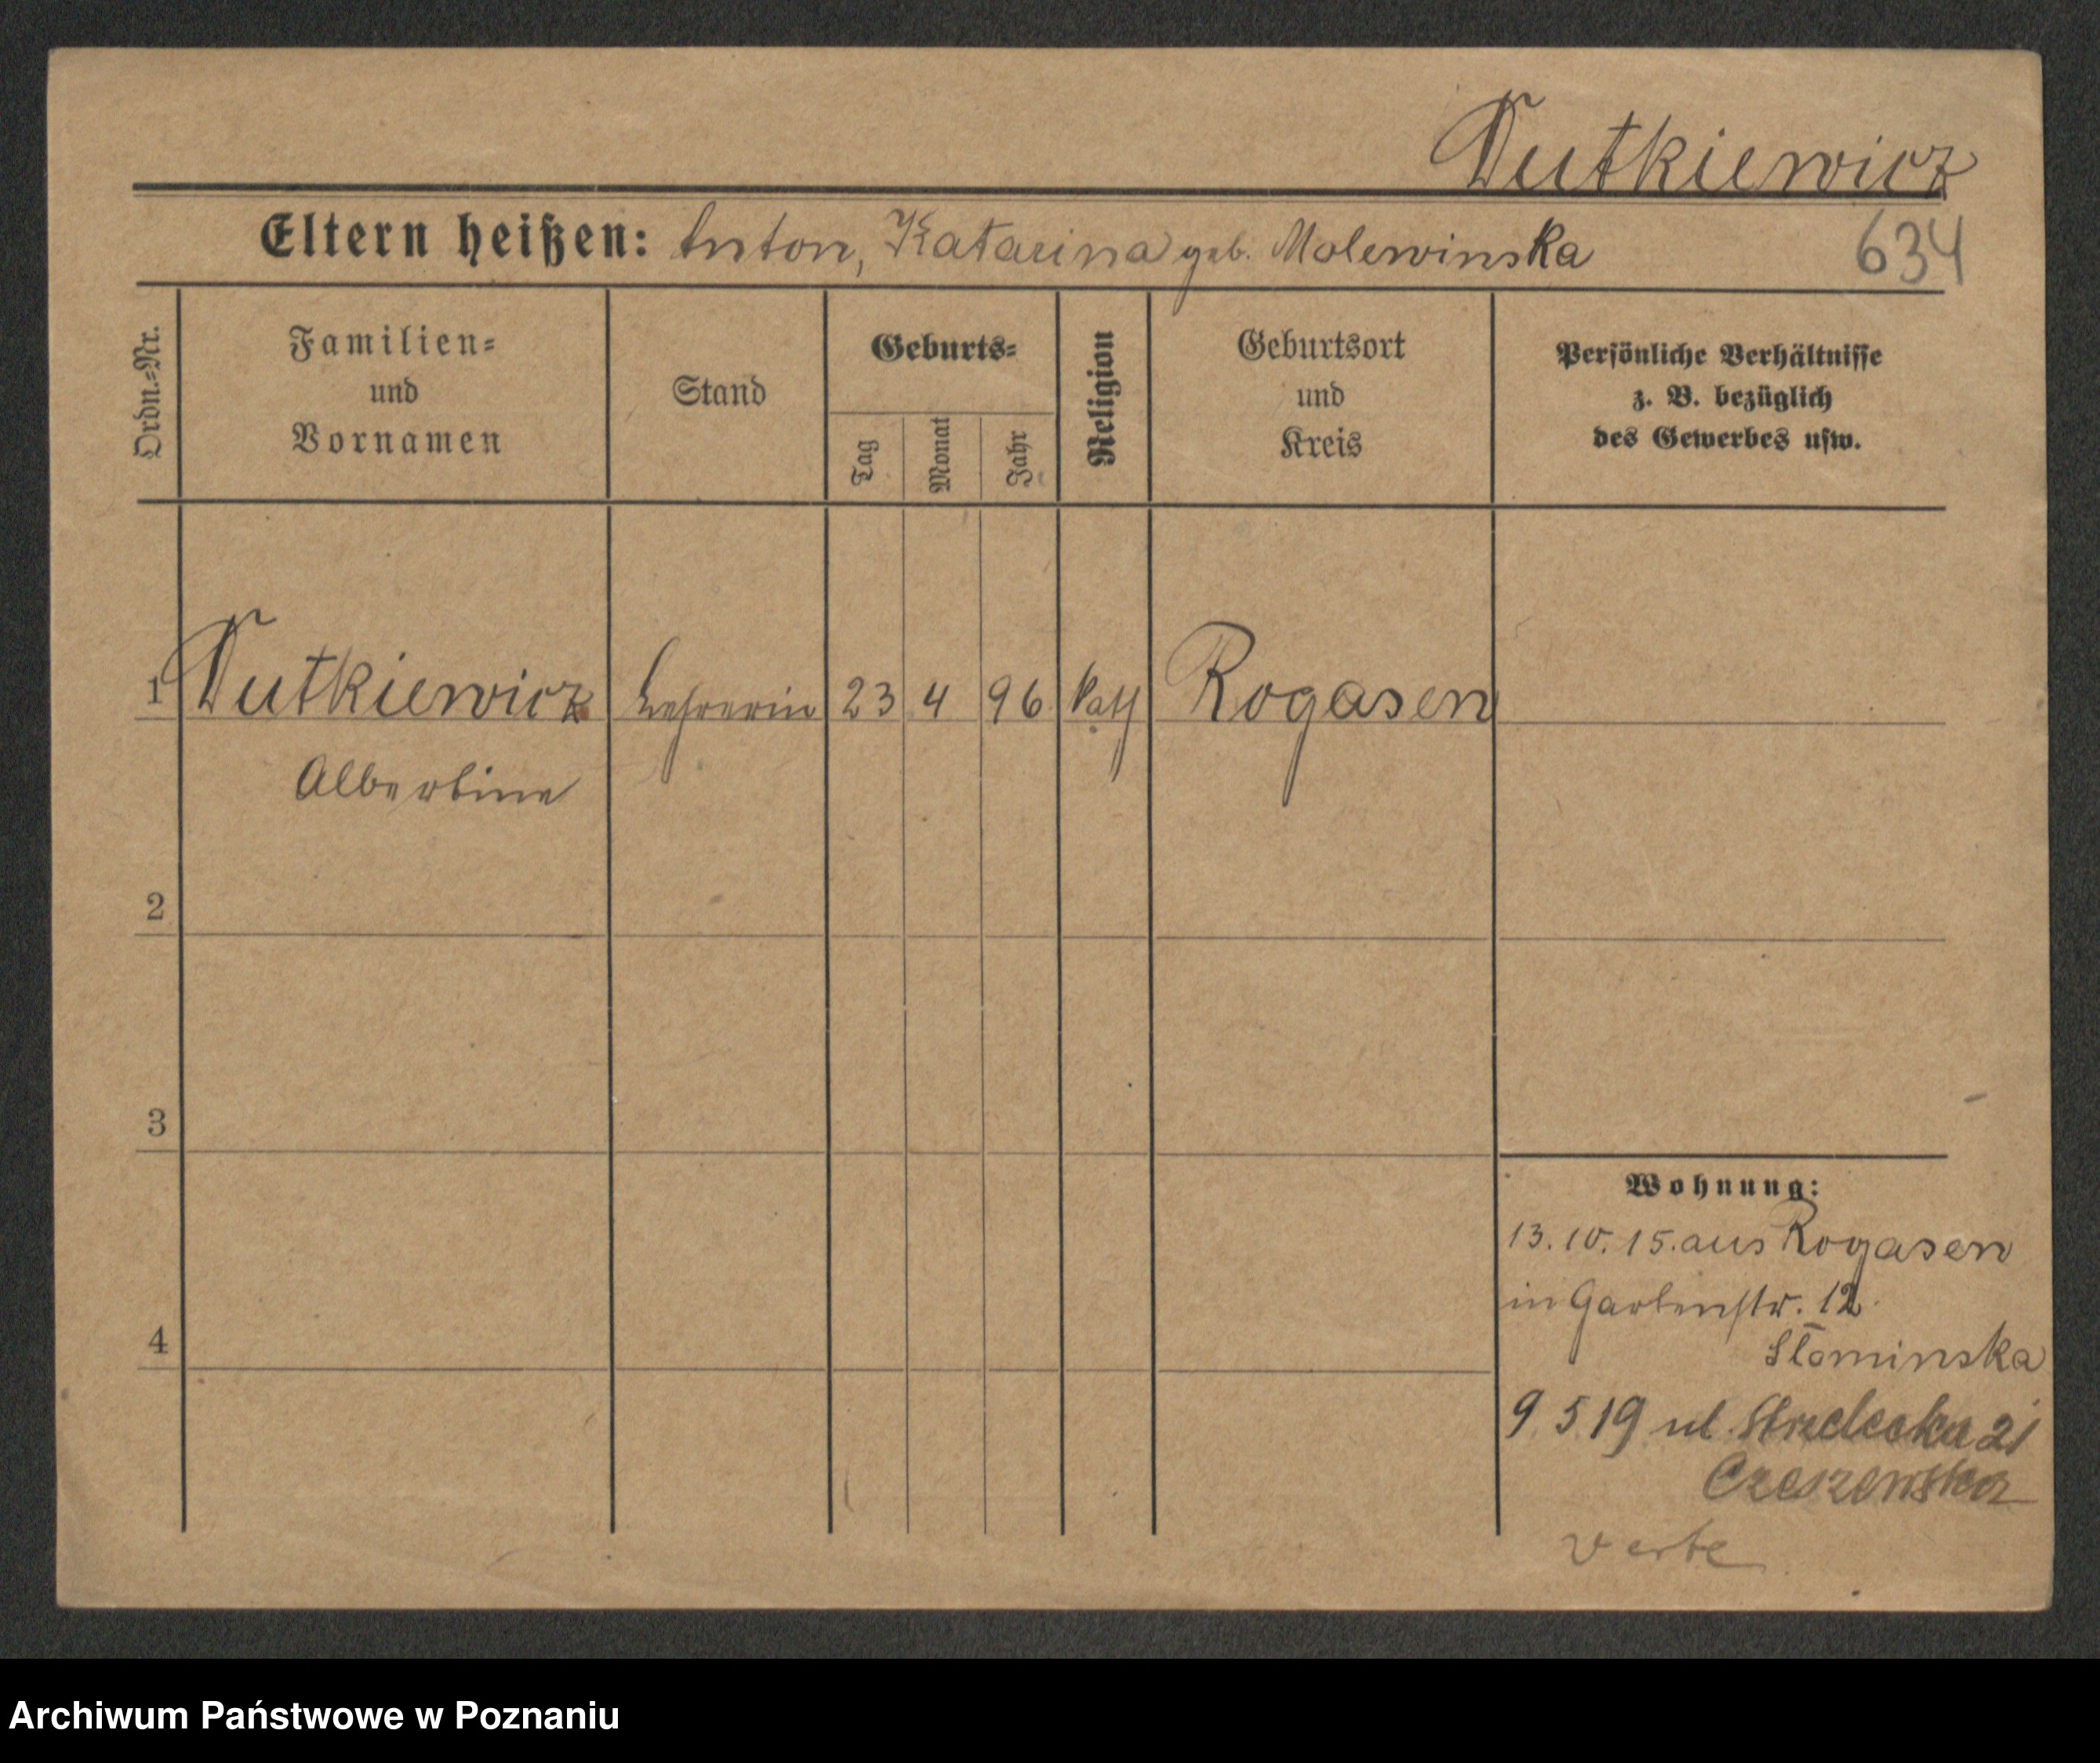 Dutkiewicz
Eltern heißen: Anton, Katarina geb. Molewinska
634
Ordn.-Nr.
Familien-
und
Vornamen
Stand
Geburts-
Tag
Monat
Jahr
Religion
Geburtsort
und
Kreis
Persönliche Verhältnisse
z. B. bezüglich
des Gewerbes usw.
1 Dutkiewicz Lehrerin 23 4 96 kath Rogasen
Albertine
2
3
4
Wohnung:
13.10.15. aus Rogasen
in Gartenstr. 12.
Słominska
9 5 19 ul. Strzelecka 21
Czeszewska
verte
Archiwum Państwowe w Poznaniu